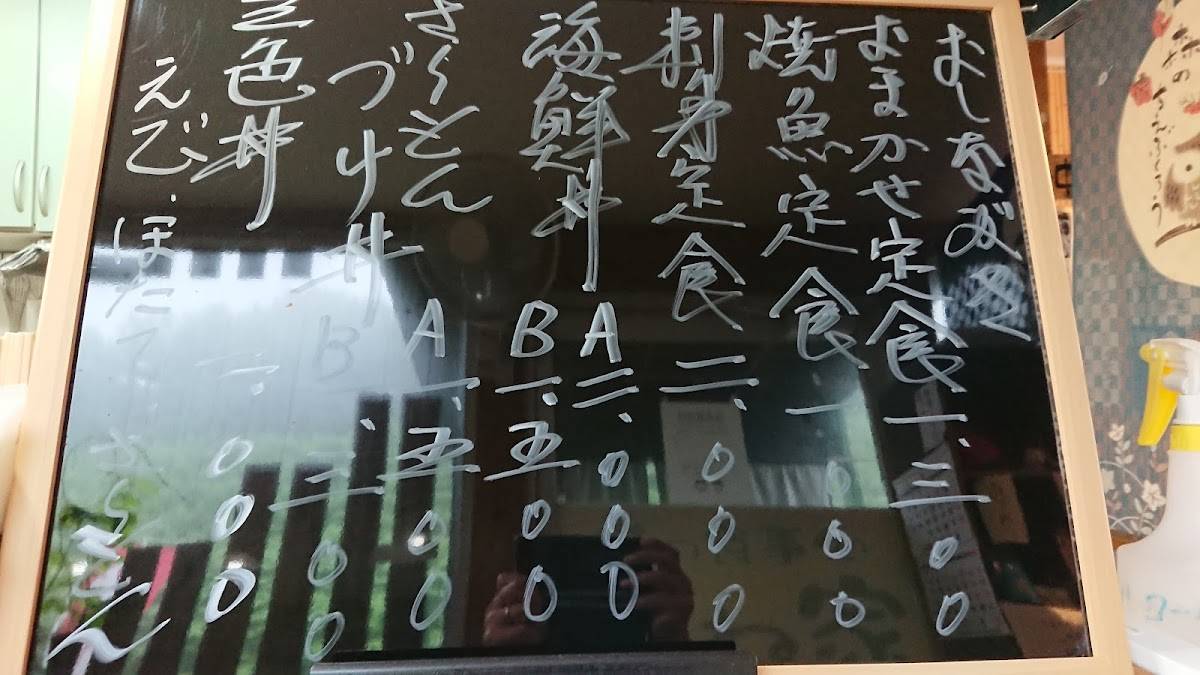 おしながき
おまかせ定食 一、三〇〇
焼魚定食 一、〇〇〇
刺身定食 二、〇〇〇
海鮮丼 A 二、〇〇〇
B 一、五〇〇
さくらとん
づけ丼 A 一、五〇〇
B 一、二〇〇
三色丼 一、〇〇〇
えび・ほたて